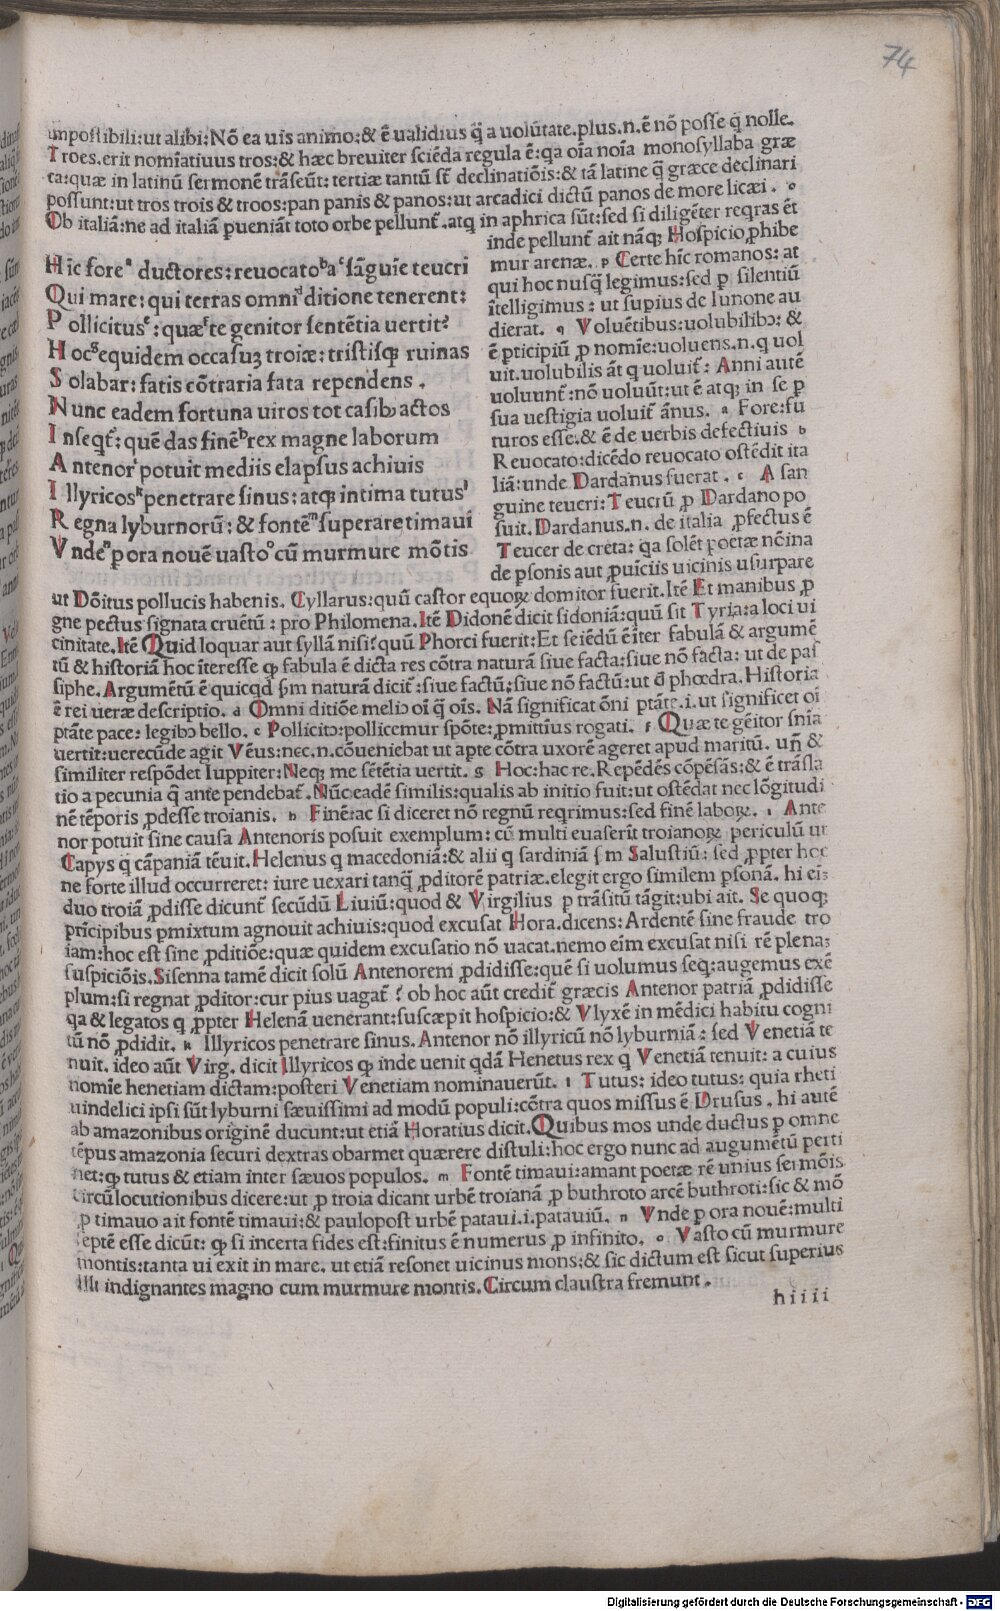 74
impossibili:ut alibi:Nō ea uis animo:& ē ualidius q̄ a uolūtate.plus.n.ē nō posse q̄ nolle.
Troes.erit nomīatiuus tros:& hæc breuiter sciēda regula ē:qa oīa noīa monosyllaba græ
ca:quæ in latinū sermonē trāseūt:tertiæ tantū sūt declinatiōis:& tā latine q̄ græce declinari
possunt:ut tros trois & troos:pan panis & panos:ut arcadici dictū panos de more licæi. o
Ob italiā:ne ad italiā pueniāt toto orbe pellunt̄.atq in aphrica sūt:sed si diligēter reqras ēt
inde pellunt̄ ait nāq; Hospicio ꝓhibe
mur arenæ. p Certe hīc romanos: at
qui hoc nusq̄ legimus:sed p silentiū
ītelligimus: ut supius de Iunone au
dierat. q Voluētibus:uolubilibɔ: &
ē pticipiū ꝓ nomīe:uoluens.n.q uol
uit.uolubilis āt q uoluit̄: Anni autē
uoluunt̄:nō uoluūt:ut ē atq; in se p
sua uestigia uoluit̄ ānus. a Fore:fu
turos esse.& ē de uerbis defectiuis b
Reuocato:dicēdo reuocato ostēdit ita
liā:unde Dardanus fuerat. c A san
guine teucri:Teucrū ꝓ Dardano po
suit.Dardanus.n. de italia ꝓfectus ē
Teucer de creta: qa solēt poetæ nōina
de psonis aut ꝓuīciis uicinis usurpare
Hīc foreᵃ ductores:reuocatoᵇaᶜsāguīe teucri
Qui mare:qui terras omniᵈditione tenerent:
Pollicitusᵉ: quæᶠte genitor sentētia uertit?
Hocᵍequidem occasuꝫ troiæ:tristisqꝫ ruinas
Solabar:fatis cōtraria fata rependens.
Nunc eadem fortuna uiros tot casibɔ actos
Inseqt̄:quē das finēʰrex magne laborum
Antenorⁱpotuit mediis elapsus achiuis
Illyricosᵏpenetrare sinus:atqꝫ intima tutusˡ
Regna lyburnorū:& fontēᵐsuperare timaui
Vndeⁿpora nouē uastoᵒcū murmure mōtis
ut Dōitus pollucis habenis. Cyllarus:quū castor equoꝝ domitor fuerit.Itē Et manibus ꝓ
gne pectus signata cruētū: pro Philomena.Itē Didonē dicit sidoniā:quū sit Tyria:a loci ui
cinitate.Itē Quid loquar aut syllā nisi?quū Phorci fuerit:Et sciēdū ē īter fabulā & argumē
tū & historiā hoc īteresse qꝫ fabula ē dicta res cōtra naturā siue facta:siue nō facta: ut de pas
siphe.Argumētū ē quicqd ſm naturā dicit̄:siue factū:siue nō factū:ut d̄ phœdra.Historia
ē rei ueræ descriptio. d Omni ditiōe meliɔ oī q̄ oīs. Nā significat ōni ptāte.i.ut significet oī
ptāte pace: legibɔ bello. e Pollicitɔ:pollicemur spōte:ꝓmittius rogati. f Quæ te gēitor sn̄ia
uertit:uerecūde agit Vēus:nec.n.cōueniebat ut apte cōtra uxorē ageret apud maritū. un̄ &
similiter respōdet Iuppiter:Neqꝫ me sētētia uertit. g Hoc:hac re.Repēdēs cōpēsās:& ē trāsla
tio a pecunia q̄ ante pendebat̄.Nūc eadē similis:qualis ab initio fuit:ut ostēdat nec lōgitudi
nē tēporis ꝓdesse troianis. h Finē:ac si diceret nō regnū reqrimus:sed finē laboꝝ. i Ante
nor potuit sine causa Antenoris posuit exemplum: cū multi euaserīt troianoꝝ periculū ut
Capys q cāpaniā tēuit.Helenus q macedoniā:& alii q sardiniā ſm Salustiū: sed ꝓpter hoc
ne forte illud occurreret: iure uexari tanq̄ ꝓditorē patriæ.elegit ergo similem psonā. hi ei;
duo troiā ꝓdisse dicunt̄ secūdū Liuiū:quod & Virgilius p trāsitū tāgit:ubi ait. Se quoqꝫ
prīcipibus pmixtum agnouit achiuis:quod excusat Hora.dicens:Ardentē sine fraude tro
iam:hoc est sine ꝓditiōe:quæ quidem excusatio nō uacat.nemo eīm excusat nisi rē plenaꝫ
suspiciōis.Sisenna tamē dicit solū Antenorem ꝓdidisse:quē si uolumus seq:augemus exē
plum:si regnat ꝓditor:cur pius uagat̄? ob hoc aūt credit̄ græcis Antenor patriā ꝓdidisse
qa & legatos q ꝓpter Helenā uenerant:suscæpit hospicio:& Vlyxē in mēdici habitu cogni
tū nō ꝓdidit. k Illyricos penetrare sinus. Antenor nō illyricū nō lyburniā: sed Venetiā te
nuit. ideo aūt Virg. dicit Illyricos qꝫ inde uenit qdā Henetus rex q Venetiā tenuit: a cuius
nomīe henetiam dictam:posteri Venetiam nominauerūt. l Tutus: ideo tutus: quia rheti
uindelici ipsi sūt lyburni sæuissimi ad modū populi:cōtra quos missus ē Drusus. hi autē
ab amazonibus originē ducunt:ut etiā Horatius dicit.Quibus mos unde ductus p omne
tēpus amazonia securi dextras obarmet quærere distuli:hoc ergo nunc ad augumētū perti
net:qꝫ tutus & etiam inter sæuos populos. m Fontē timaui:amant poetæ rē unius sermōis
circūlocutionibus dicere:ut ꝓ troia dicant urbē troianā ꝓ buthroto arcē buthroti:sic & mō
ꝓ timauo ait fontē timaui:& paulopost urbē pataui.i.patauiū. n Vnde p ora nouē:multi
septē esse dicūt: qꝫ si incerta fides est:finitus ē numerus ꝓ infinito. o Vasto cū murmure
montis:tanta ui exit in mare. ut etiā resonet uicinus mons:& sic dictum est sicut superius
Illi indignantes magno cum murmure montis.Circum claustra fremunt.
hiiii
Digitalisierung gefördert durch die Deutsche Forschungsgemeinschaft - DFG